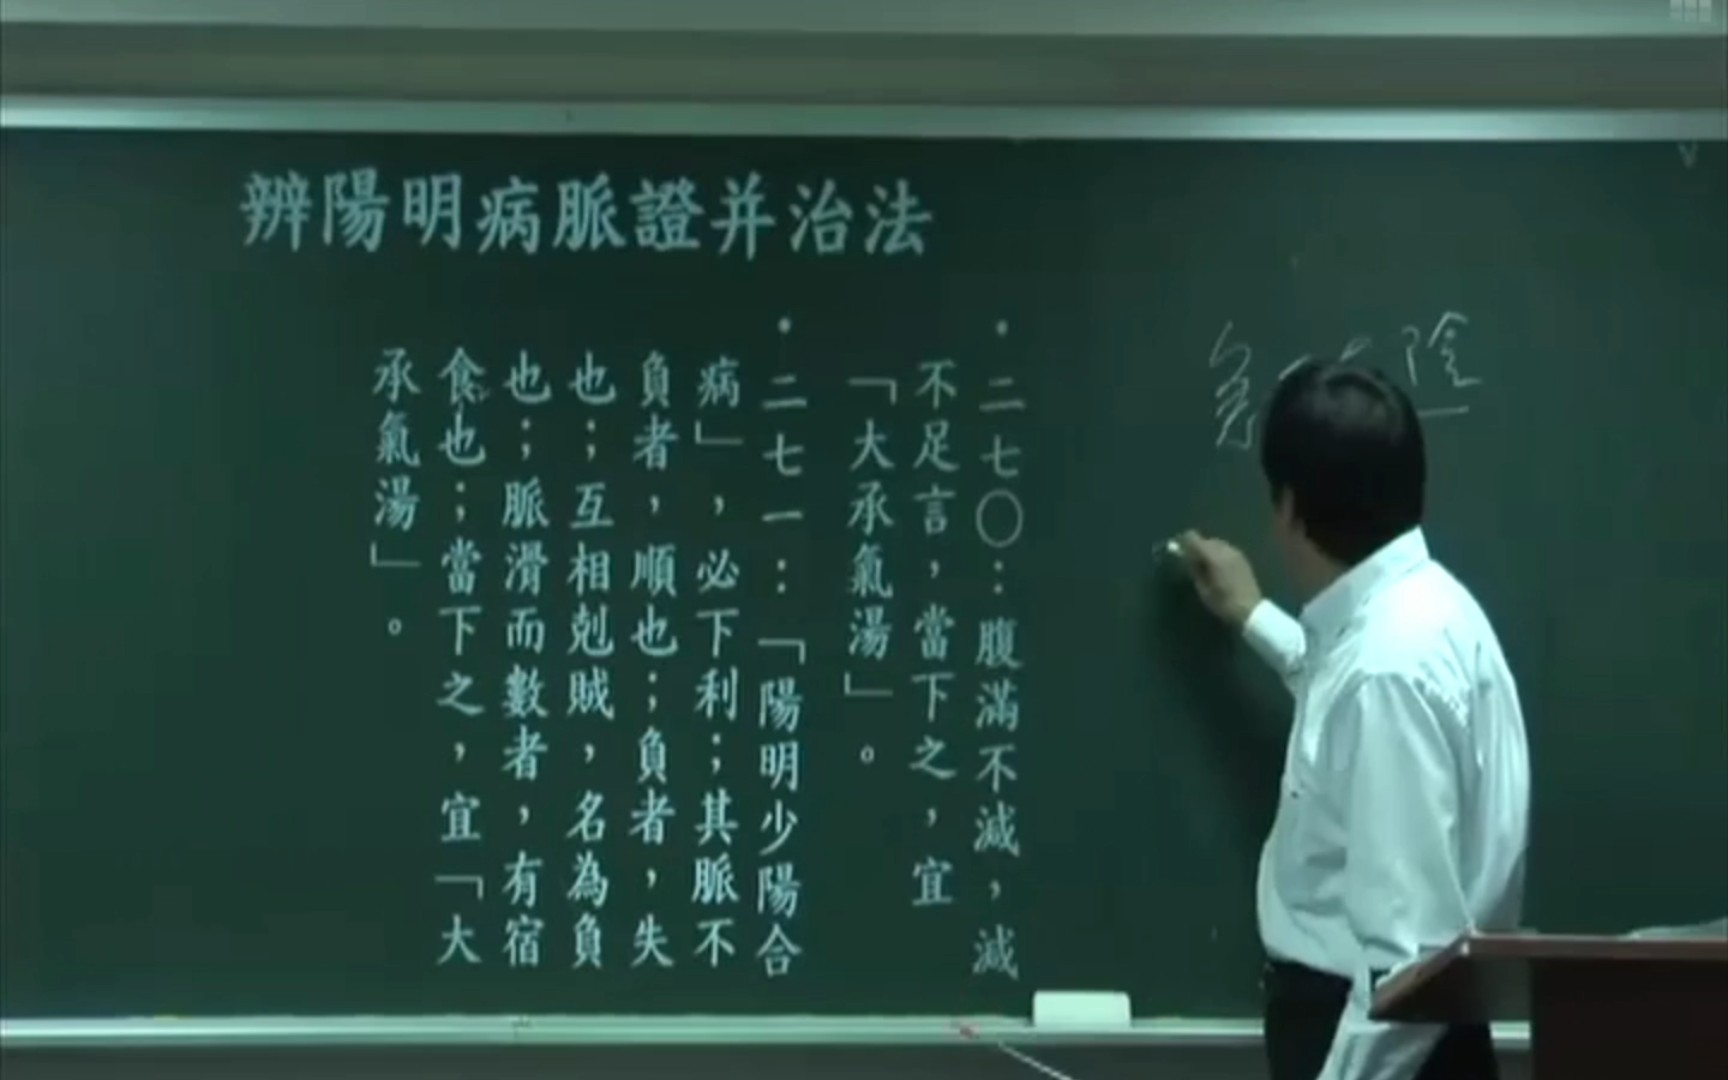 辨陽明病脈證并治法
•二七〇：腹滿不減，減
不足言，當下之，宜
「大承氣湯」。
•二七一：「陽明少陽合
病」，必下利；其脈不
負者，順也；負者，失
也；互相剋賊，名為負
也；脈滑而數者，有宿
食也；當下之，宜「大
承氣湯」。
陰